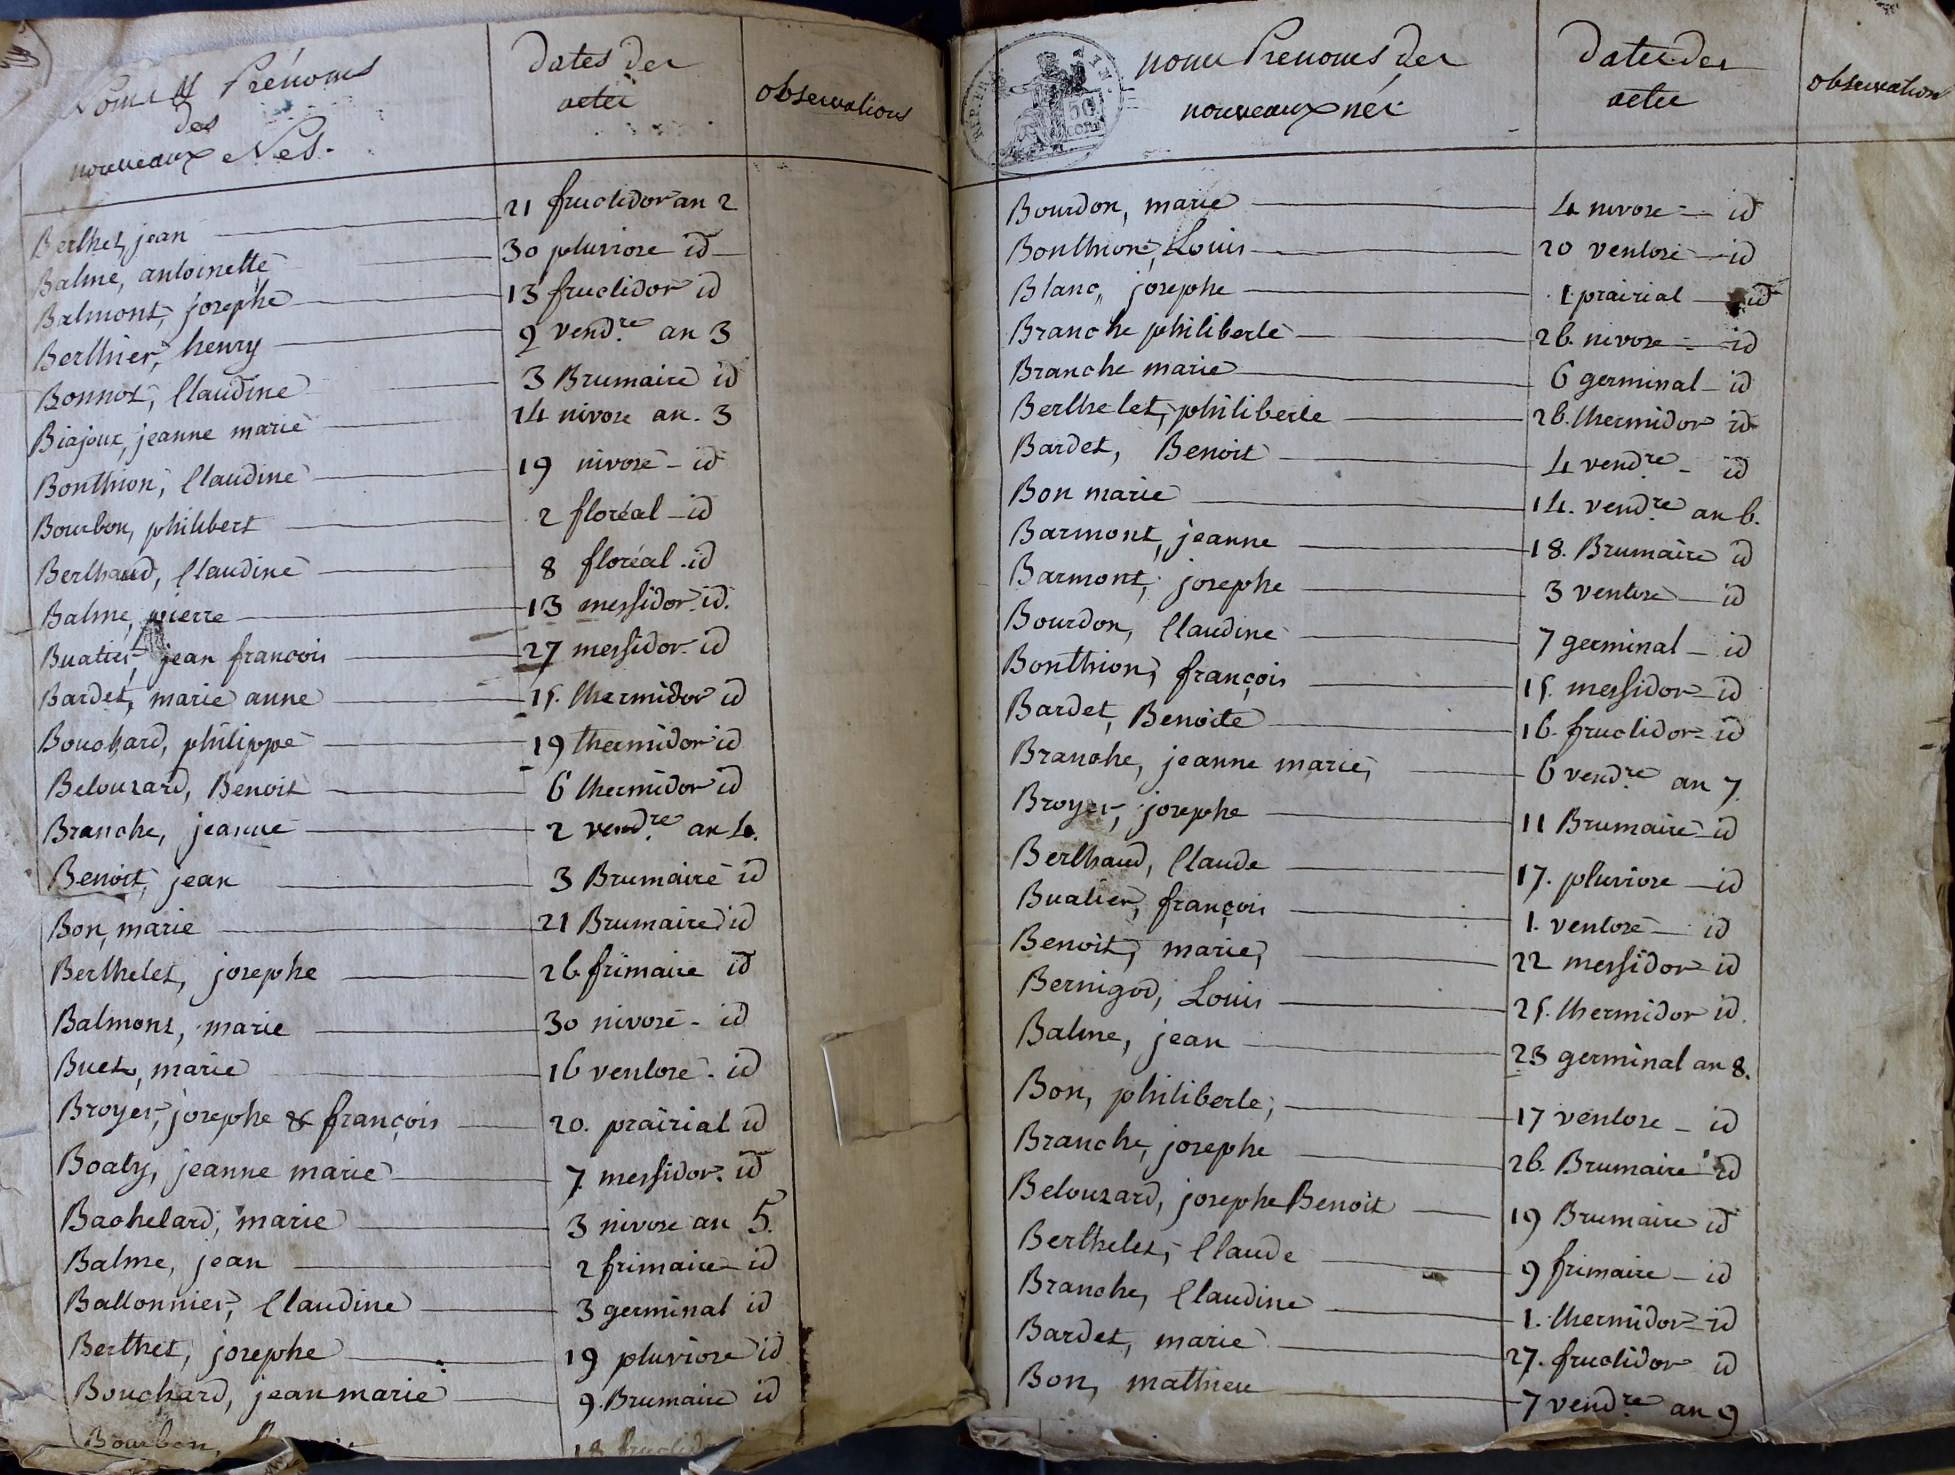 Noms & Prénoms
des
nouveaux Nés.
dates des
actes
observations
Berthet, jean 21 fructidor an 2
Balme, antoinette 30 pluviose id
Balmont, josephe 13 fructidor id
Berthier, henry 2 vend.re an 3
Bonnot, Claudine 3 Brumaire id
Biajoux, jeanne marie 14 nivose an. 3
Bonthion, Claudine 19 nivose id
Bourbon, philibert 2 floréal id
Berthaud, Claudine 8 floréal id
Balme, pierre 13 messidor id.
Buatier, jean francois 27 messidor id
Bardet, marie anne 15. thermidor id
Bouchard, philippe 19 thermidor id
Belouzard, Benoit 6 thermidor id
Branche, jeanne 2 vend.re an 4.
Benoit, jean 3 Brumaire id
Bon, marie 21 Brumaire id
Berthelet, josephe 26 frimaire id
Balmont, marie 30 nivose id
Buet, marie 16 ventose id
Broyer, josephe & françois 20. prairial id
Boaty, jeanne marie 7 messidor id
Bachelard, marie 3 nivose an 5.
Balme, jean 2 frimaire id
Ballonnier, Claudine 3 germinal id
Berthet, josephe 19 pluviose id
Bouchard, jean marie 9. Brumaire id
Bourbon, 18 fructidor
noms Prenoms des
nouveaux nés
dates des
actes
observation
REP. FRA.
50
CENT
Bourdon, marie 4 nivose id
Bonthion, Louis 20 ventose id
Blanc, josephe 1 prairial id
Branche philiberte 26. nivose id
Branche marie 6 germinal id
Berthelet, philiberte 26. thermidor id
Bardet, Benoit 4 vend.re id
Bon marie 14. vend.re an 6.
Barmont, jeanne 18. Brumaire id
Barmont, josephe 3 ventose id
Bourdon, Claudine 7 germinal id
Bonthion, françois 15. messidor id
Bardet, Benoite 16. fructidor id
Branche, jeanne marie, 6 vend.re an 7.
Broyer, josephe 11 Brumaire id
Berthaud, Claude 17. pluviose id
Buatier, françois 1. ventose id
Benoit, marie, 22 messidor id
Bernigod, Louis 25. thermidor id.
Balme, jean 23 germinal an 8.
Bon, philiberte, 17 ventose id
Branche, josephe 26. Brumaire id
Belouzard, josephe Benoit 19 Brumaire id
Berthelet, Claude 9 frimaire id
Branche, Claudine 1. thermidor id
Bardet, marie 27. fructidor id
Bon, mathieu 7 vend.re an 9